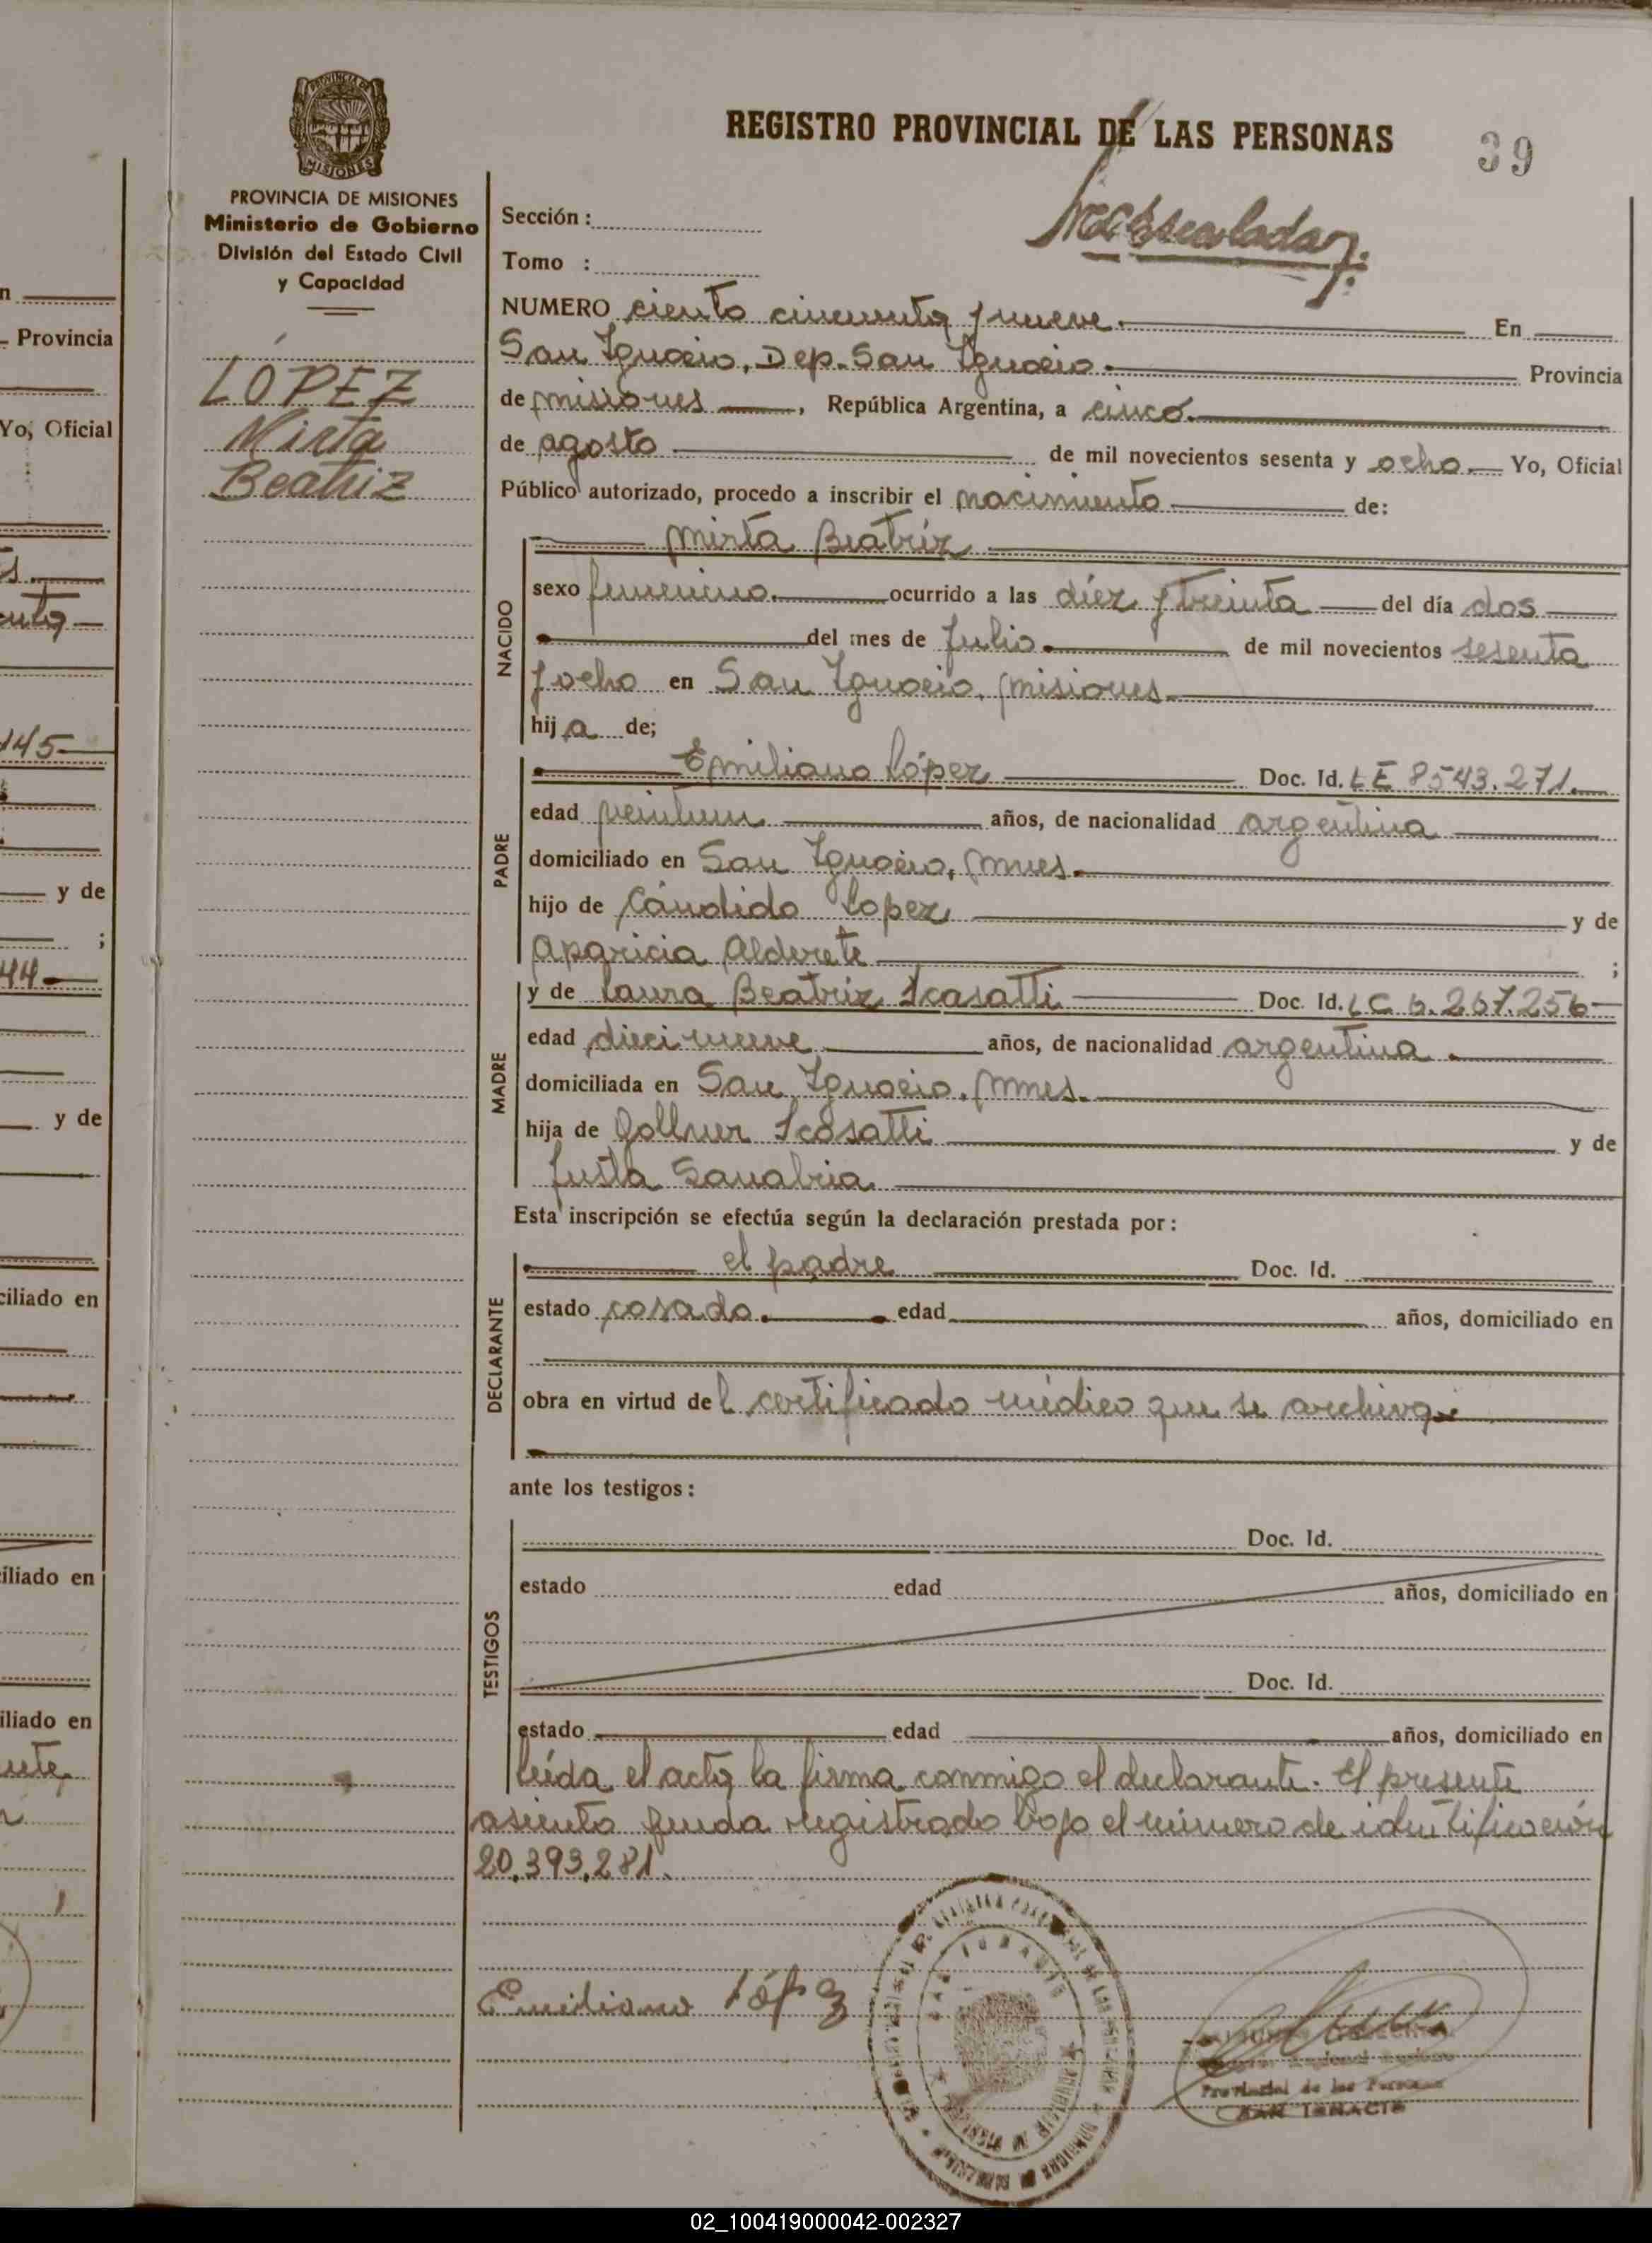 REGISTRO PROVINCIAL DE LAS PERSONAS
39
PROVINCIA DE MISIONES
Ministerio de Gobierno
División del Estado Civil
y Capacidad
LOPEZ
Mirta
Beatriz
Sección :
Tomo :
NUMERO ciento cincuenta y nueve. En
San Ignacio, Dep. San Ignacio. Provincia
de Misiones , República Argentina, a cinco.
de agosto de mil novecientos sesenta y ocho. Yo, Oficial
Público autorizado, procedo a inscribir el nacimiento de:
Mirta Beatriz
NACIDO
sexo femenino. ocurrido a las diez y treinta del día dos
del mes de Julio. de mil novecientos sesenta
y ocho en San Ignacio, Misiones.
hija de;
PADRE
Emiliano López Doc. Id. LE 8543.271.
edad veintiun años, de nacionalidad argentina
domiciliado en San Ignacio, Mnes.
hijo de Cándido Lopez y de
Aparicia Alderete ;
MADRE
y de Laura Beatriz Scasatti Doc. Id. LC 6.267.256
edad diecinueve años, de nacionalidad argentina.
domiciliada en San Ignacio, Mnes.
hija de Gollner Scosatti y de
Justa Sanabria.
Esta inscripción se efectúa según la declaración prestada por :
DECLARANTE
el padre Doc. Id.
estado casado. edad años, domiciliado en
obra en virtud del certificado médico que se archiva
ante los testigos :
TESTIGOS
Doc. Id.
estado edad años, domiciliado en
Doc. Id.
estado edad años, domiciliado en
leída el acta, la firma conmigo el declarante. El presente
asiento queda registrado bajo el número de identificación
20.393.281.
Emiliano López
Provincial de las Personas
SAN IGNACIO
n
Provincia
Yo, Oficial
145
y de
;
44
y de
ciliado en
iliado en
iliado en
02_100419000042-002327